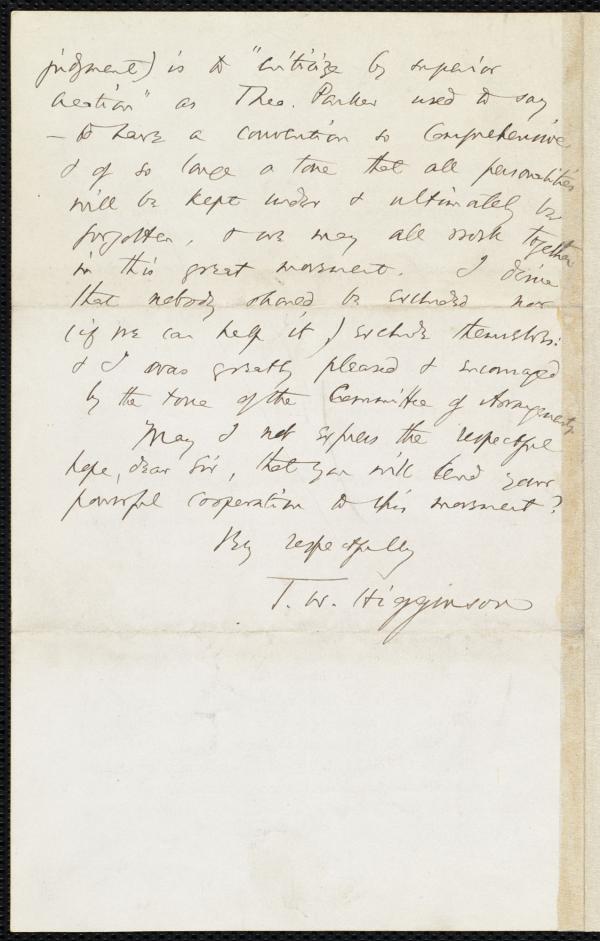 judgment) is to "criticize by superior
creation" as Theo. Parker used to say
— to have a convention so comprehensive,
& of so large a tone that all personalities
will be kept under & ultimately be
forgotten, & we may all work together
in this great movement. I desire
that nobody should be excluded nor
(if we can help it,) exclude themselves:
& I was greatly pleased & encouraged
by the tone of the Committee of Arrangements
May I not express the respectful
hope, dear Sir, that you will lend your
powerful cooperation to this movement?
Very respectfully
T. W. Higginson